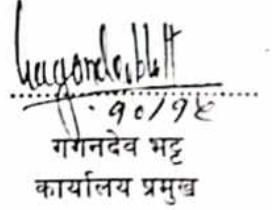 १०/१८
गगनदेव भट्ट
कार्यालय प्रमुख